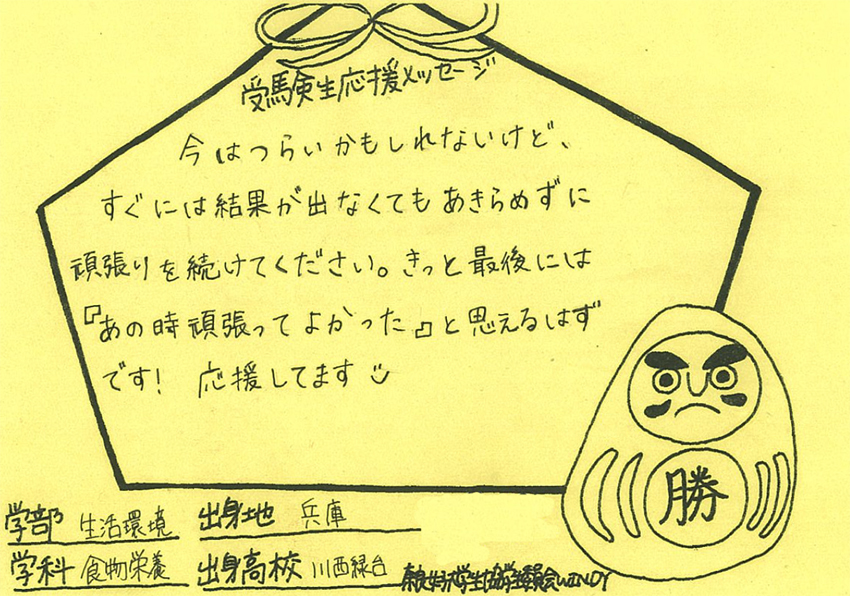 受験生応援メッセージ
今はつらいかもしれないけど、
すぐには結果が出なくてもあきらめずに
頑張りを続けてください。きっと最後には
『あの時頑張ってよかった』と思えるはず
です! 応援してます
勝
学部 生活環境 出身地 兵庫
学科 食物栄養 出身高校 川西緑台
WINDY